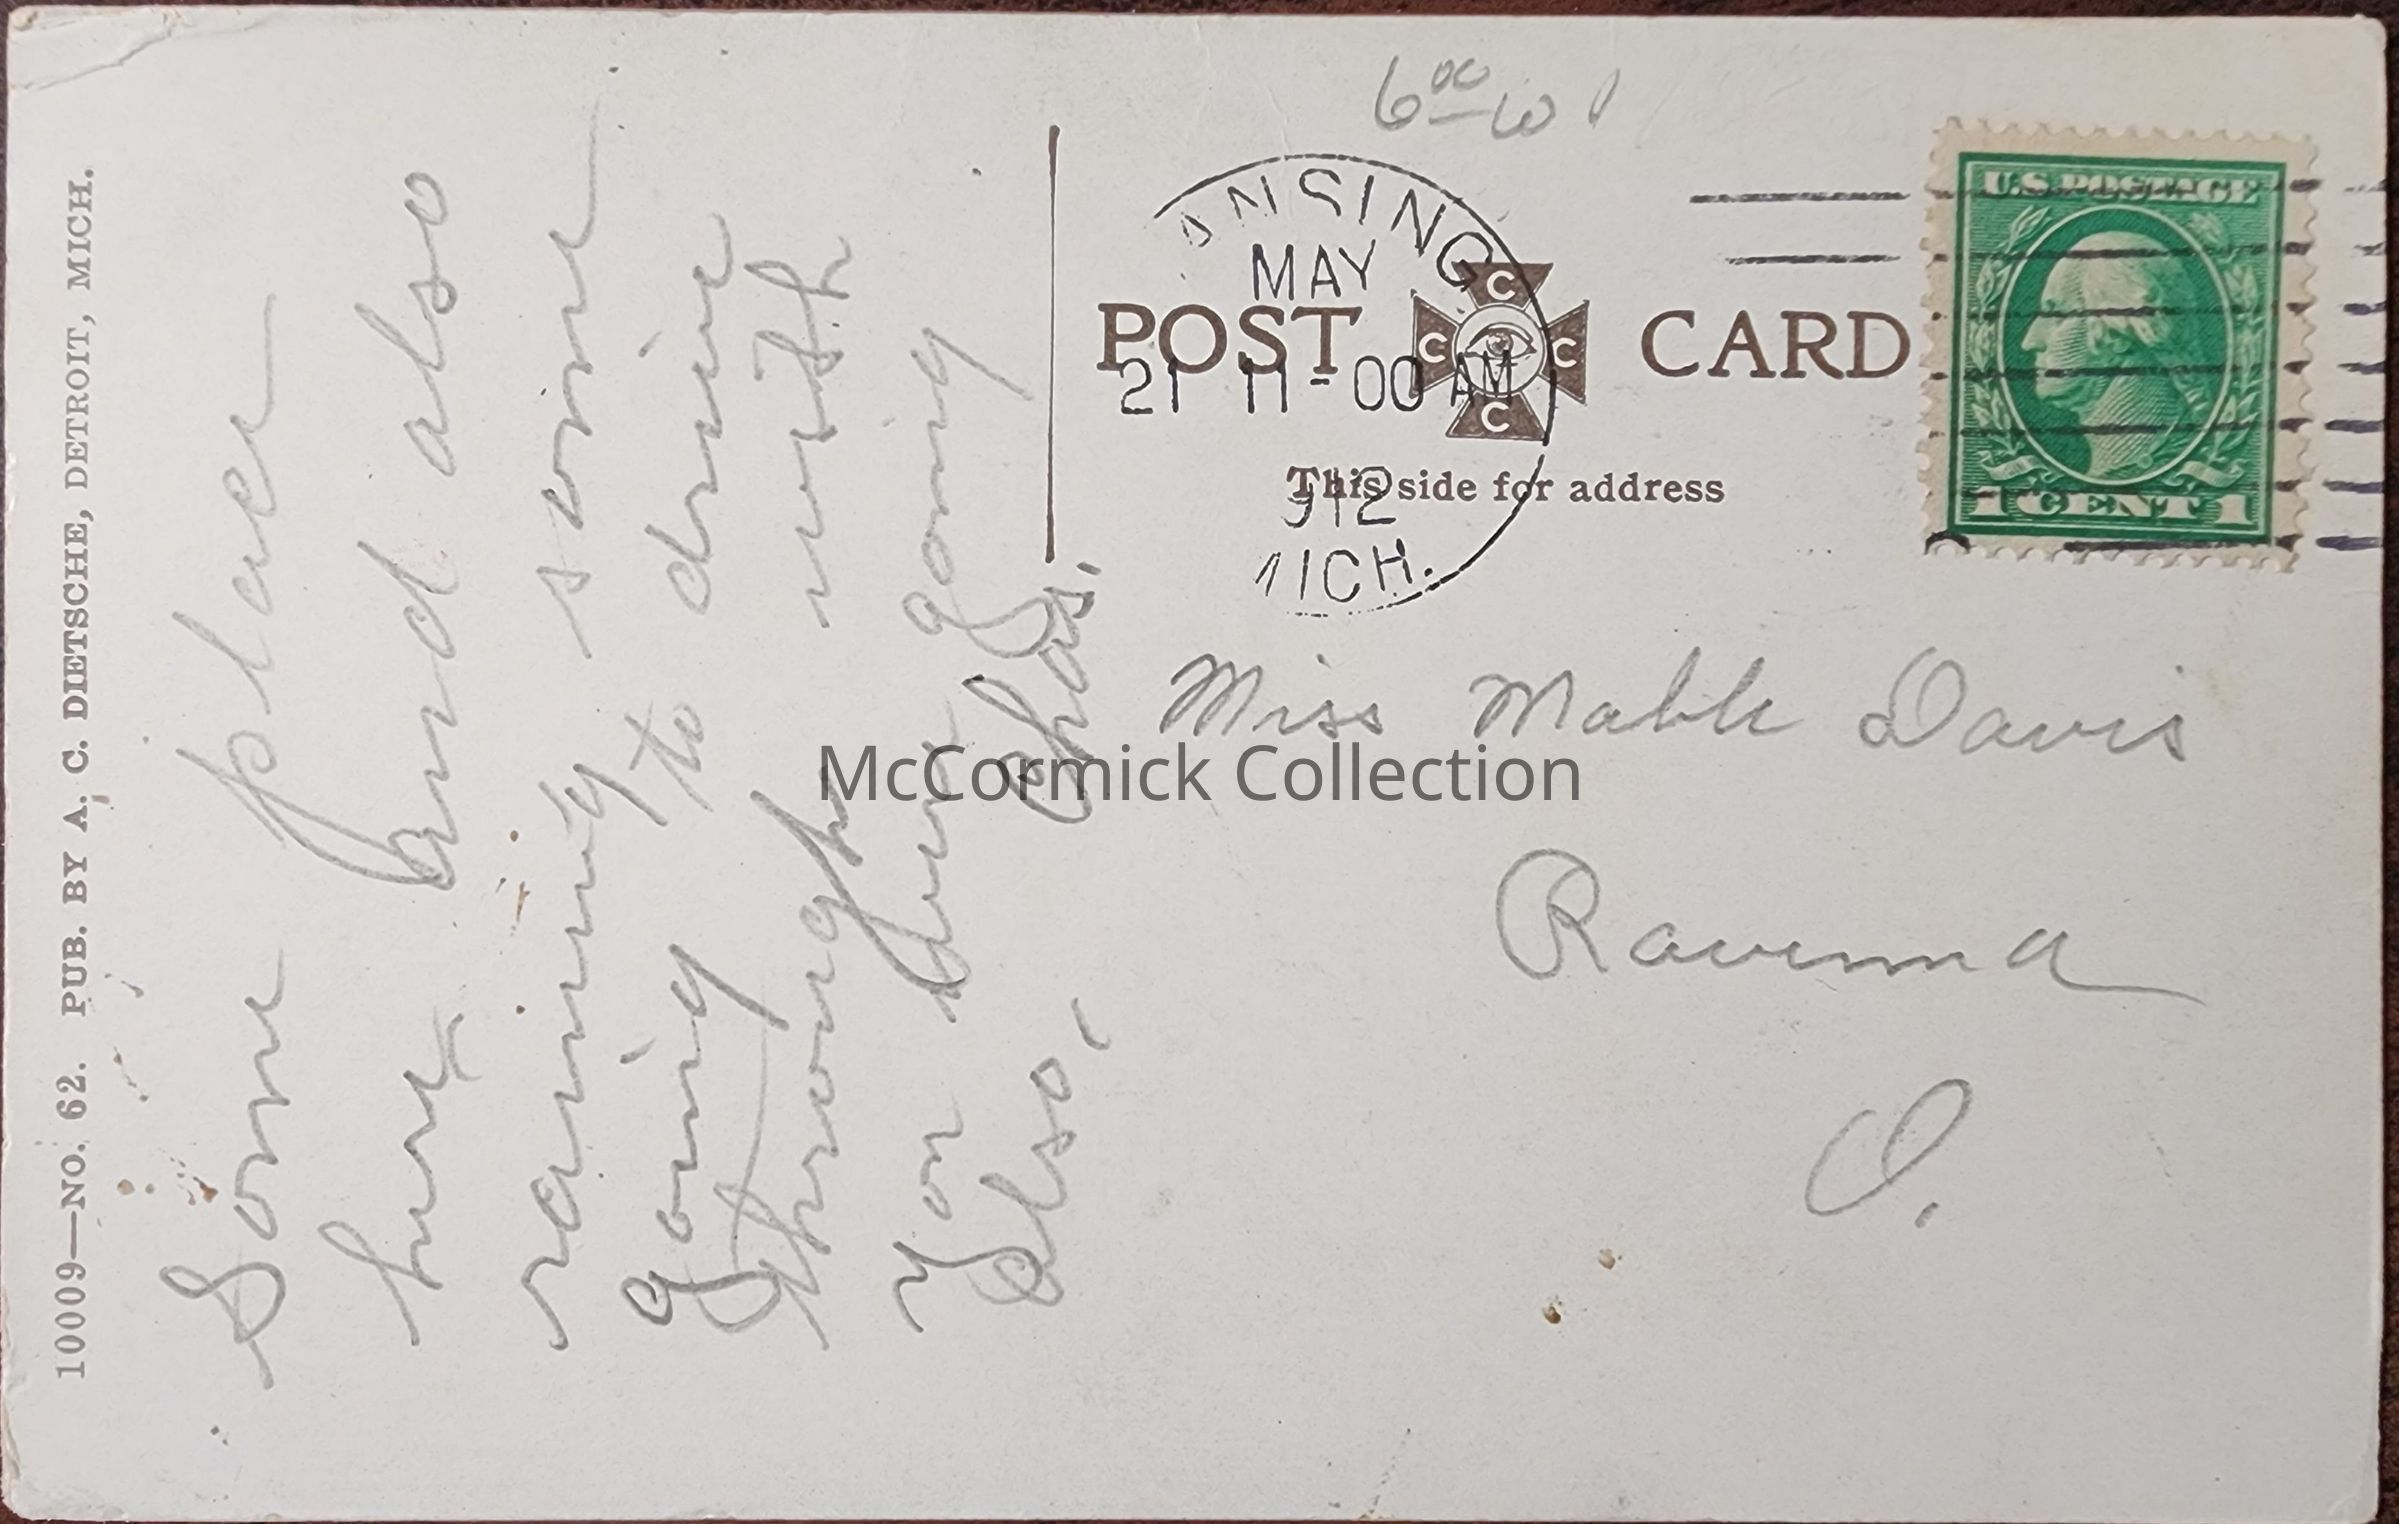 10009—NO. 62. PUB. BY A. C. DIETSCHE, DETROIT, MICH.
Some place
here and also
raining some
going to drive
through with
you have going
Also, Chas.
6⁰⁰
ANSING
MAY
21 11-00 AM
912
MICH.
POST CARD
C
C C
C
This side for address
U.S. POSTAGE
1 CENT 1
Miss Mable Davis
Ravenna
O.
McCormick Collection